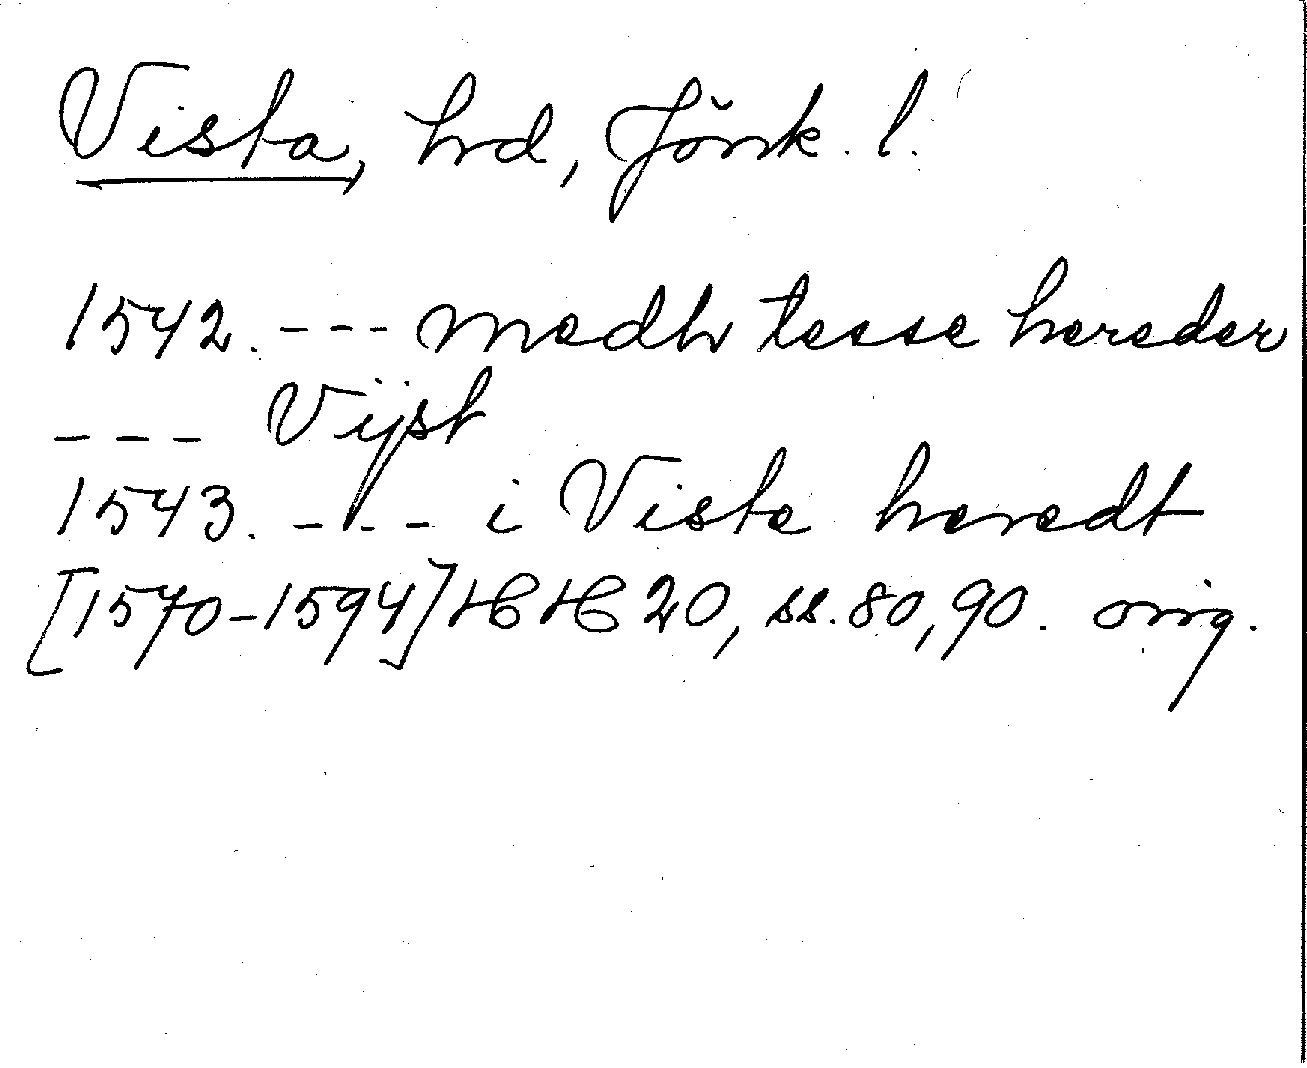 Vista, hrd, Jönk. l.
1542. --- medh tesse hereder
--- Vijst
1543. --- i Viste heredt
[1570-1594] HH 20, ss. 80, 90. orig.